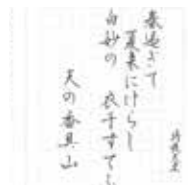 春過ぎて
夏来にけらし
白妙の 衣干すてふ
天の香具山
持統天皇